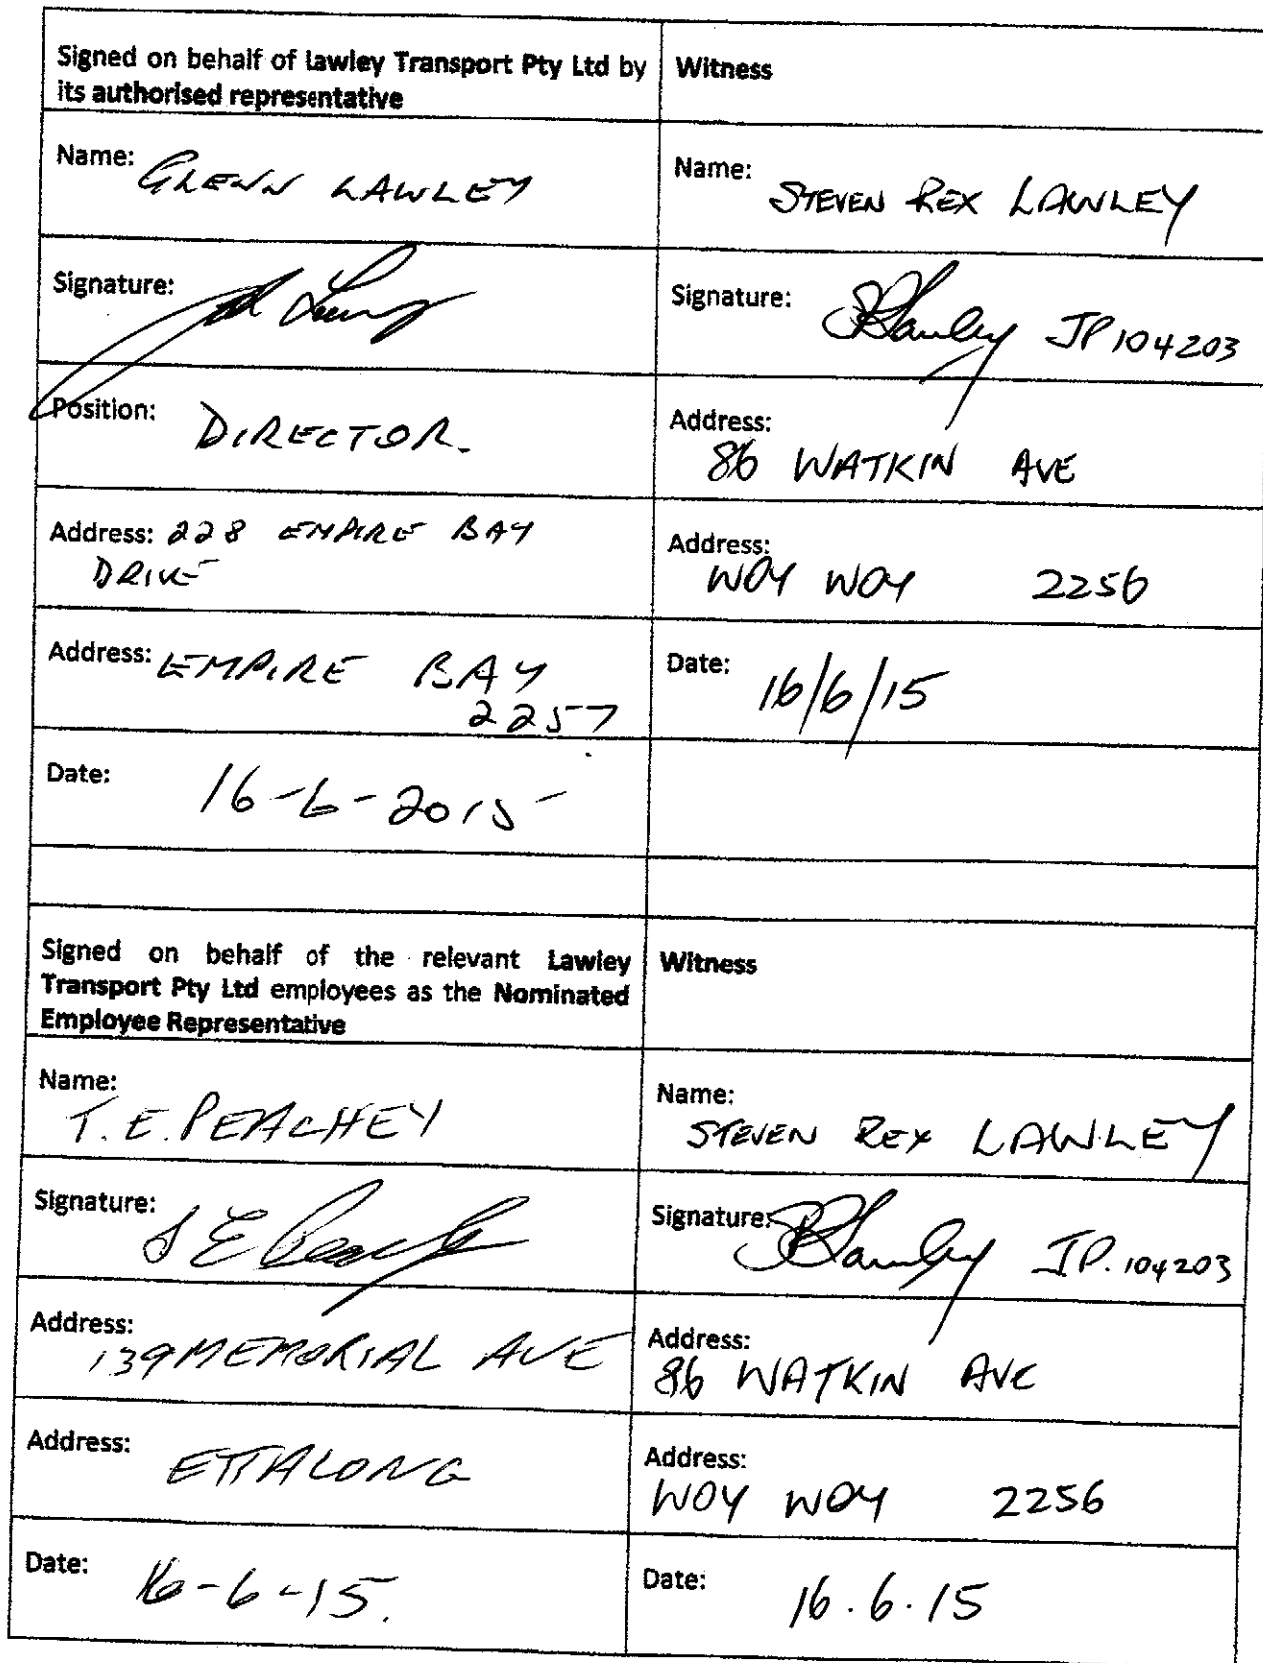 Signed on behalf of Lawley Transport Pty Ltd by
its authorised representative
Witness
Name: GLENN LAWLEY
Name: STEVEN REX LAWLEY
Signature:
Signature: JP 104203
Position: DIRECTOR.
Address:
86 WATKIN AVE
Address: 228 EMPIRE BAY
DRIVE
Address:
WOY WOY 2256
Address: EMPIRE BAY
2257
Date: 16/6/15
Date: 16-6-2015
Signed on behalf of the relevant Lawley
Transport Pty Ltd employees as the Nominated
Employee Representative
Witness
Name:
T.E. PEACHEY
Name:
STEVEN REX LAWLEY
Signature:
Signature: JP. 104203
Address:
139 MEMORIAL AVE
Address:
86 WATKIN AVE
Address: ETTALONG
Address:
WOY WOY 2256
Date: 16-6-15.
Date: 16.6.15